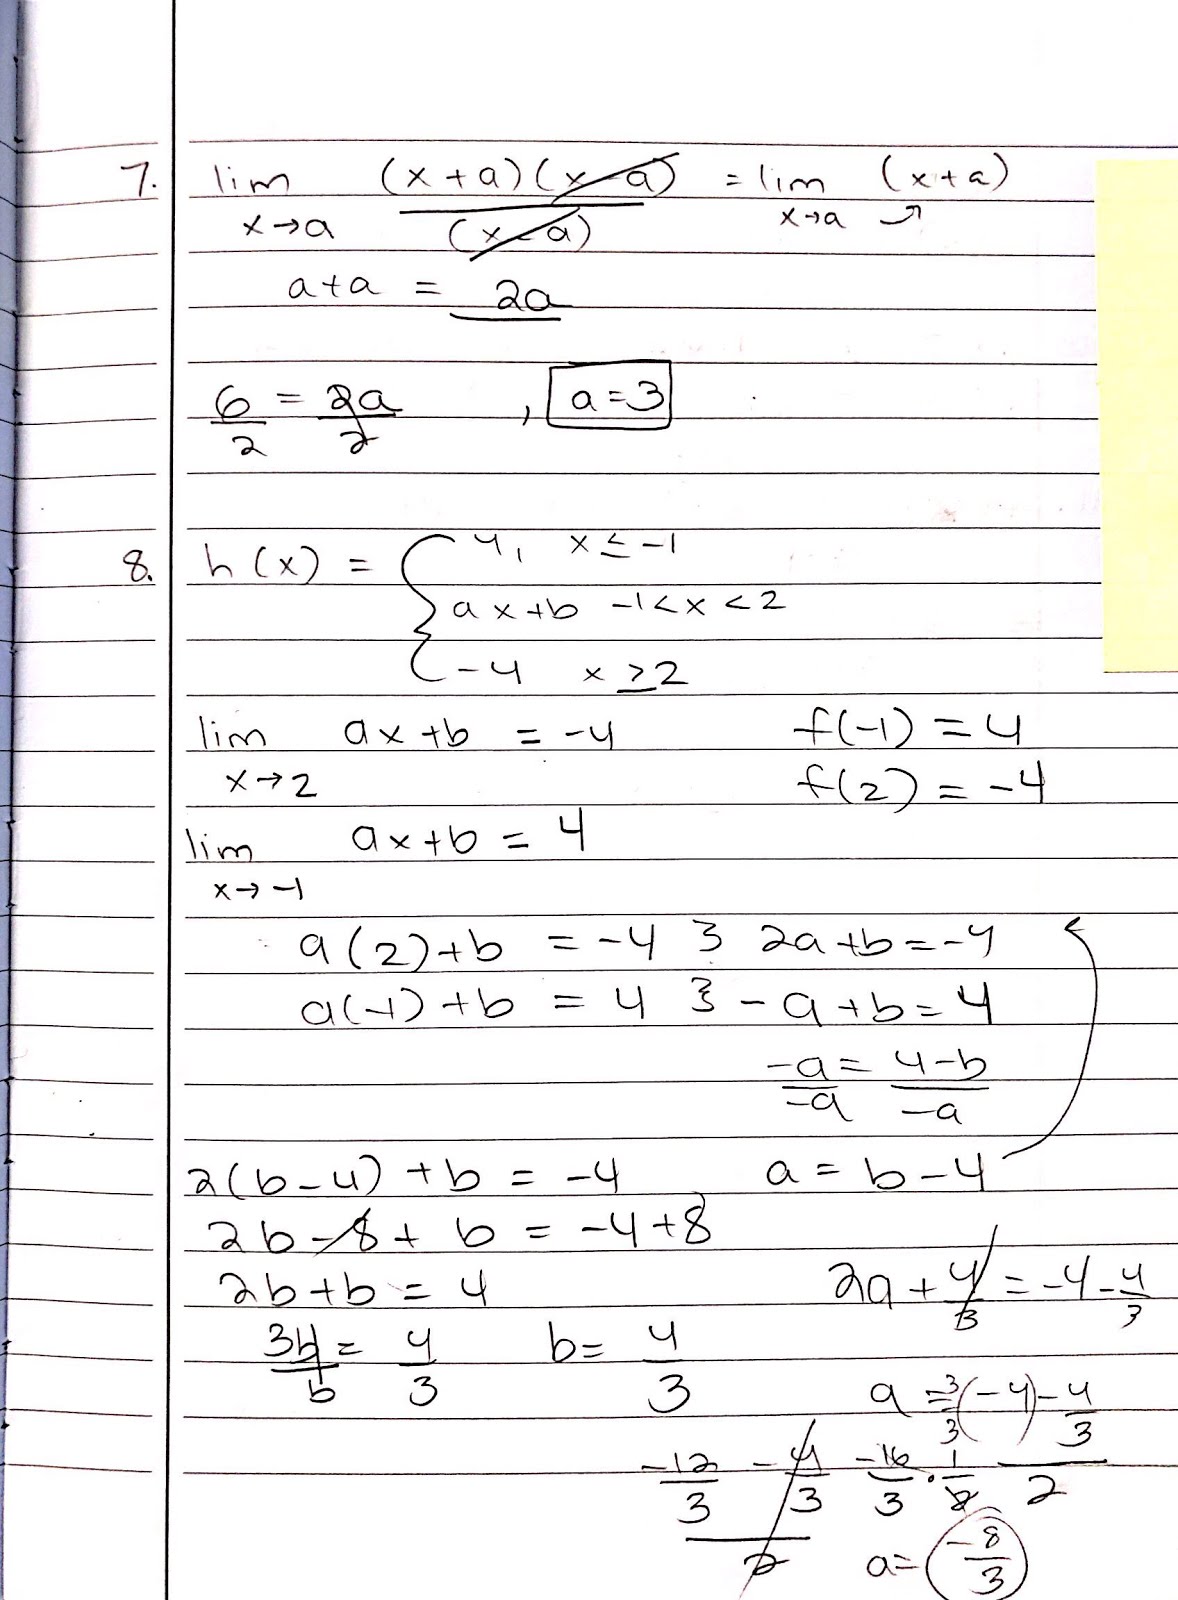 7. lim (x+a)(x-a) = lim (x+a)
x→a (x-a) x→a
a+a = 2a
6/2 = 2a/2 , a=3
8. h(x) = { 4, x ≤ -1
ax+b -1<x<2
-4 x ≥ 2
lim ax+b = -4 f(-1) = 4
x→2 f(2) = -4
lim ax+b = 4
x→ -1
a(2)+b = -4 } 2a+b=-4
a(-1)+b = 4 } -a+b=4
-a/-a = 4-b/-a
2(b-4)+b = -4 a = b-4
2b-8+b = -4+8
2b+b = 4 2a+4/3 = -4-4/3
3b/b = 4/3 b= 4/3
a = 3/3(-4)-4/3
-12/3 -4/3 -16/3 · 1/2 2
2 a= -8/3